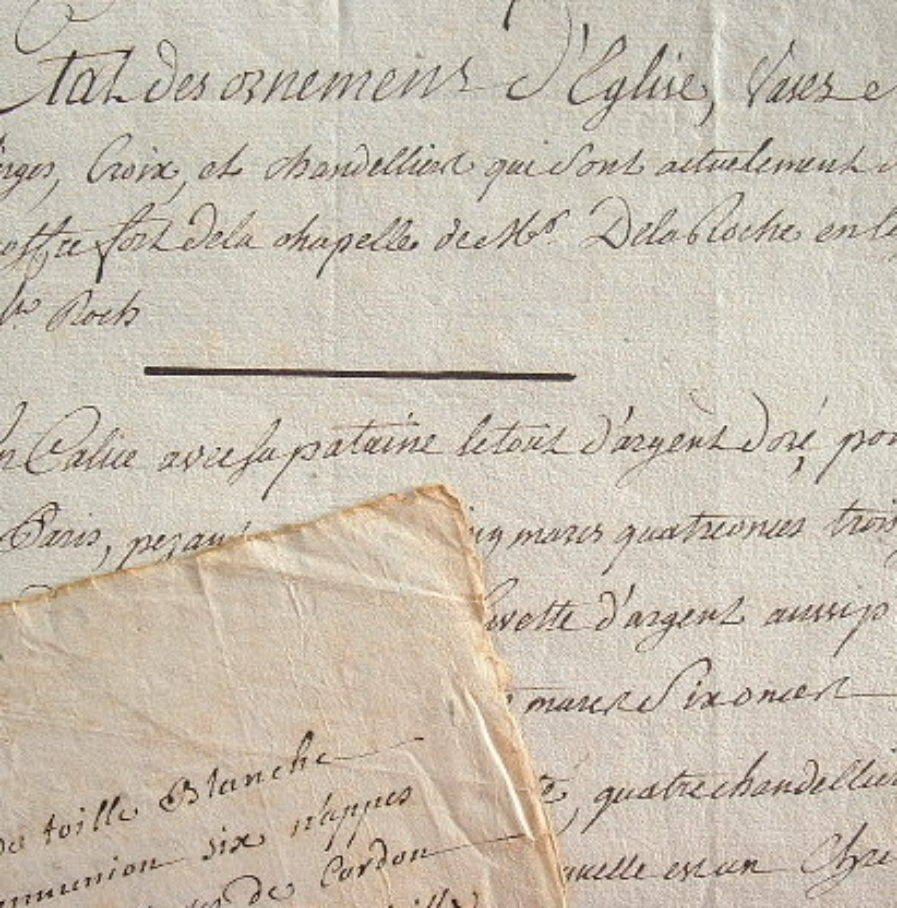 Etat des ornemens d'Eglise, Vases e
inges, Croix, et chandelliers qui sont actuelement d
coffre fort dela chapelle de Mrs. Dela Roche en le
St. Roch
un Calice avec sa pataine le tout d'argent doré, poi
Paris, pezant quatre onces trois
marcs
d'argent aussi p
marcs six onces
quatre chandellier
quelle est un
toille Blanche
ommunion six nappes
de Cordon